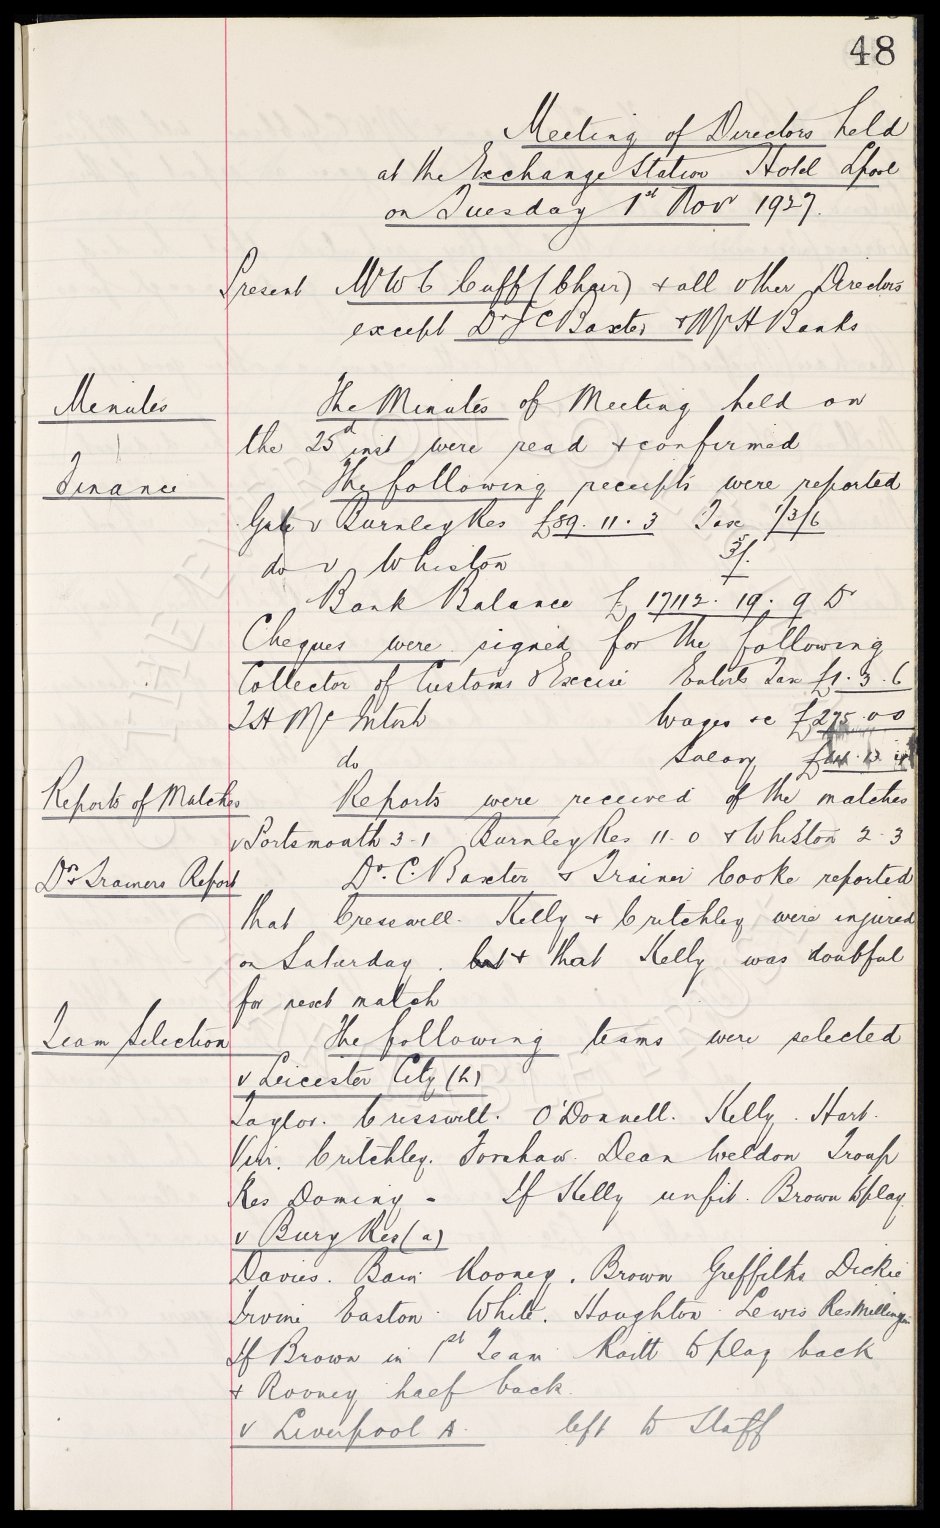 48
Meeting of Directors held
at the Exchange Station Hotel Lpool
on Tuesday 1st Nov 1927.
Present Mr W C Cuff (Chair) & all other Directors
except Dr J C Baxter & Mr H Banks
Minutes The Minutes of Meeting held on
the 25th inst were read & confirmed
Finance The following receipts were reported
Gate v Burnley Res £89. 11. 3 Tax 1/3/6
do v Whiston
Bank Balance £ 17112. 19. 9 Dr
Cheques were signed for the following
Collector of Customs & Excise Enterts Tax £1. 3. 6
T H McIntosh Wages &c £275. 0 0
do Salary £
Reports of Matches Reports were received of the matches
v Portsmouth 3-1 Burnley Res 11-0 & Whiston 2-3
Drs & Trainers Report Dr. C. Baxter & Trainer Cooke reported
that Cresswell. Kelly & Critchley were injured
on Saturday. & that Kelly was doubtful
for next match
Team Selection The following teams were selected
v Leicester City (h)
Taylor. Cresswell. O'Donnell. Kelly. Hart.
Virr. Critchley. Forshaw. Dean Weldon Troup
Res Dominy - If Kelly unfit. Brown to play.
v Bury Res (a)
Davies. Bain Rooney. Brown Griffiths Dickie
Irvine Easton. White. Houghton. Lewis Res Millington
If Brown in 1st Team Raitt to play back
& Rooney half back.
v Liverpool A. left to Staff